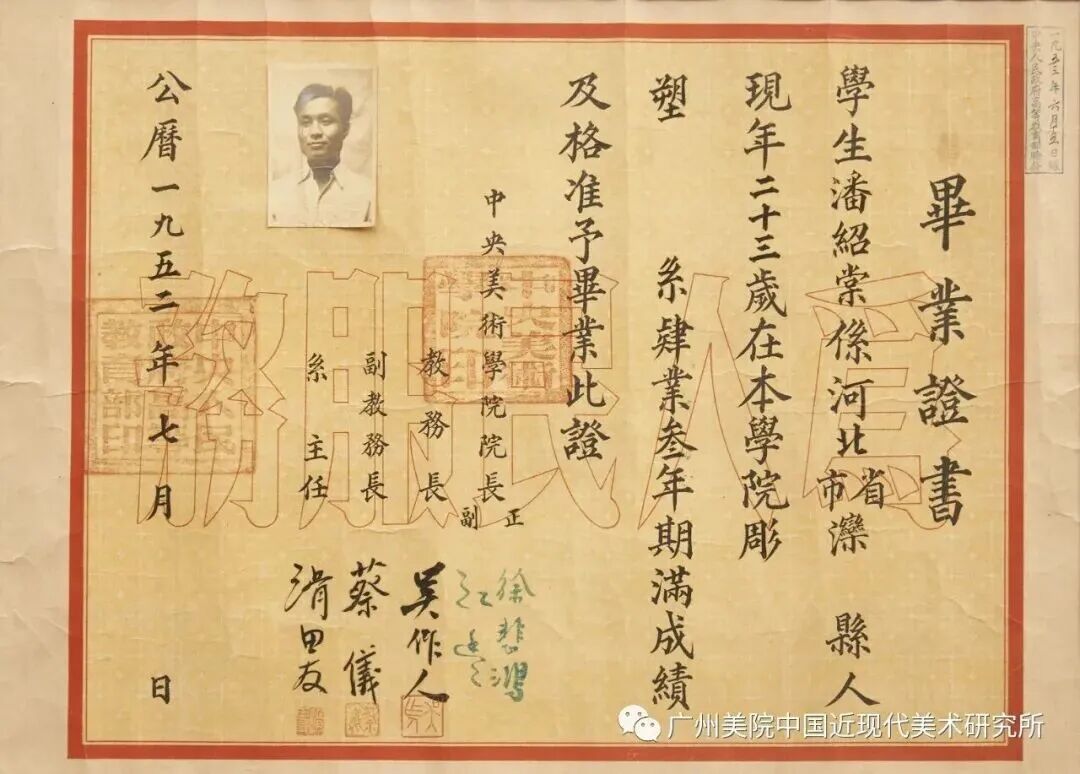 畢業證書
學生潘紹棠係河北省市灤 縣人
現年二十三歲在本學院彫
塑 系肄業叁年期滿成績
及格准予畢業此證
中央美術學院院長正副
徐悲鴻
教務長
吳作人
副教務長
蔡儀
系主任
滑田友
公曆一九五二年七月 日
為人民服務
中央美術學院印
教育部印
一九五三年六月十五日
中央人民政府高等教育部
广州美院中国近现代美术研究所